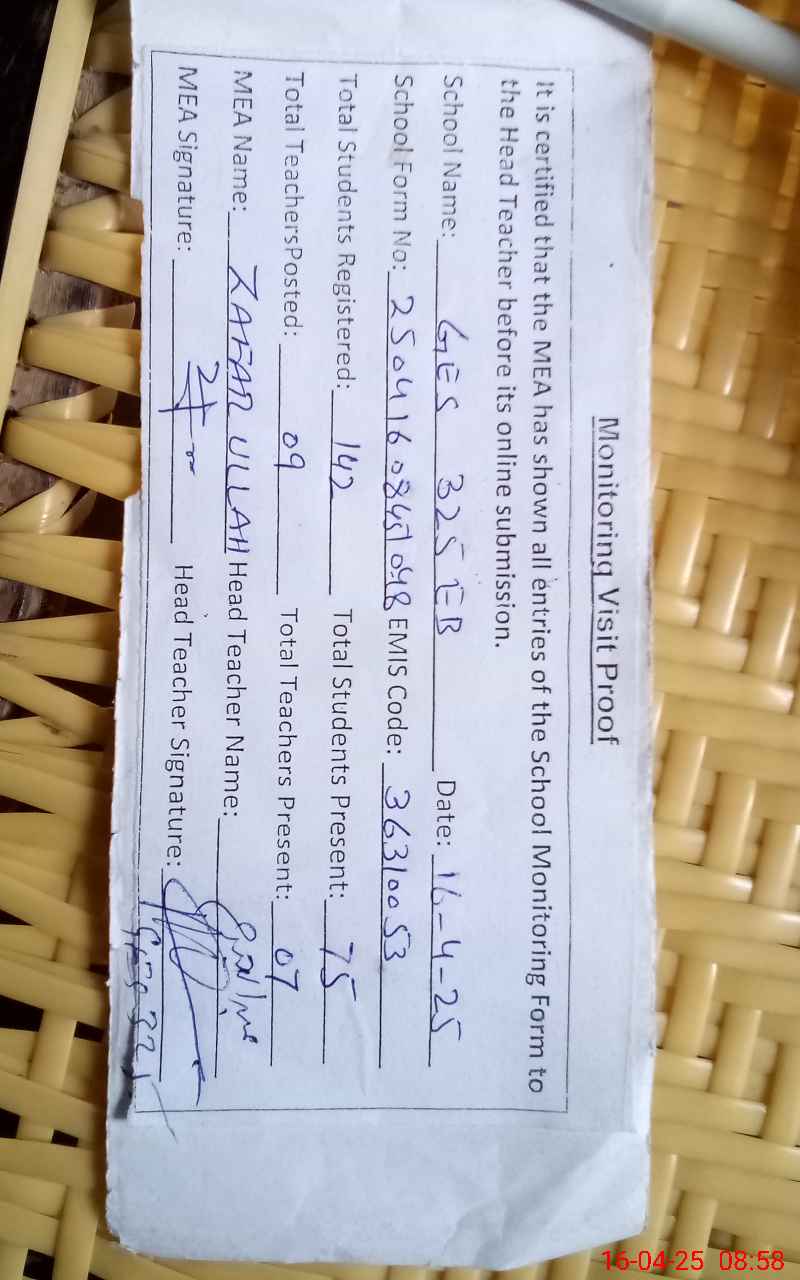 Monitoring Visit Proof
It is certified that the MEA has shown all entries of the School Monitoring Form to
the Head Teacher before its online submission.
School Name: GES 325 EB Date: 16-4-25
School Form No: 25041608451048 EMIS Code: 36310053
Total Students Registered: 142 Total Students Present: 75
Total TeachersPosted: 09 Total Teachers Present: 07
MEA Name: ZAFAR ULLAH Head Teacher Name:
MEA Signature: Head Teacher Signature:
16-04-25 08:58